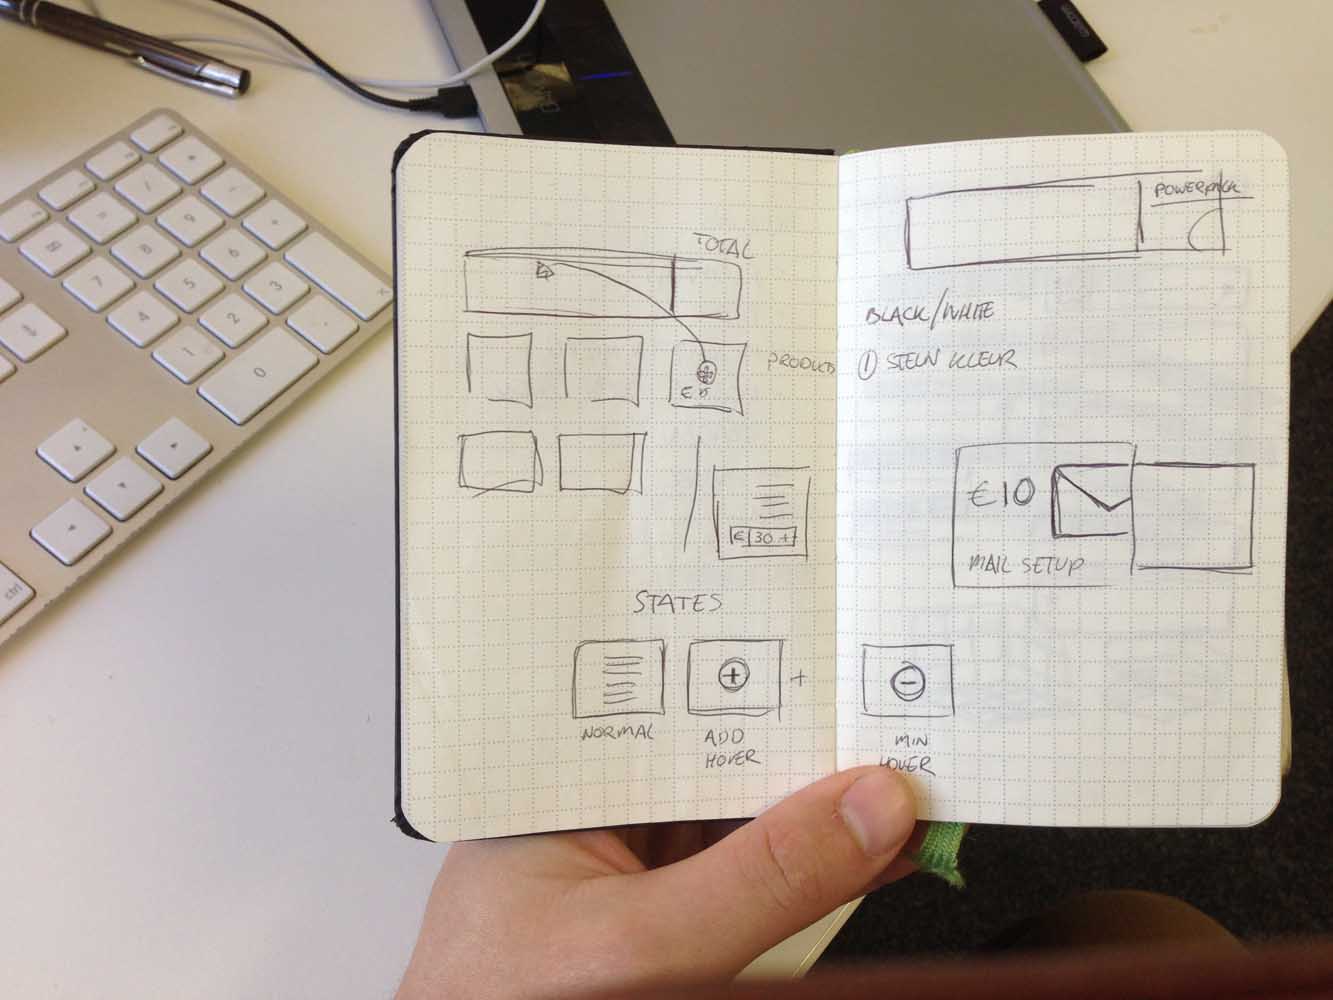 TOTAL
PRODUCTS
€ 15
€ 30 +
STATES
NORMAL
ADD
HOVER
+
POWERPACK
BLACK/WHITE
① STEUN KLEUR
€10
MAIL SETUP
MIN
HOVER
7
8
9
4
5
6
1
2
3
0
ctrl